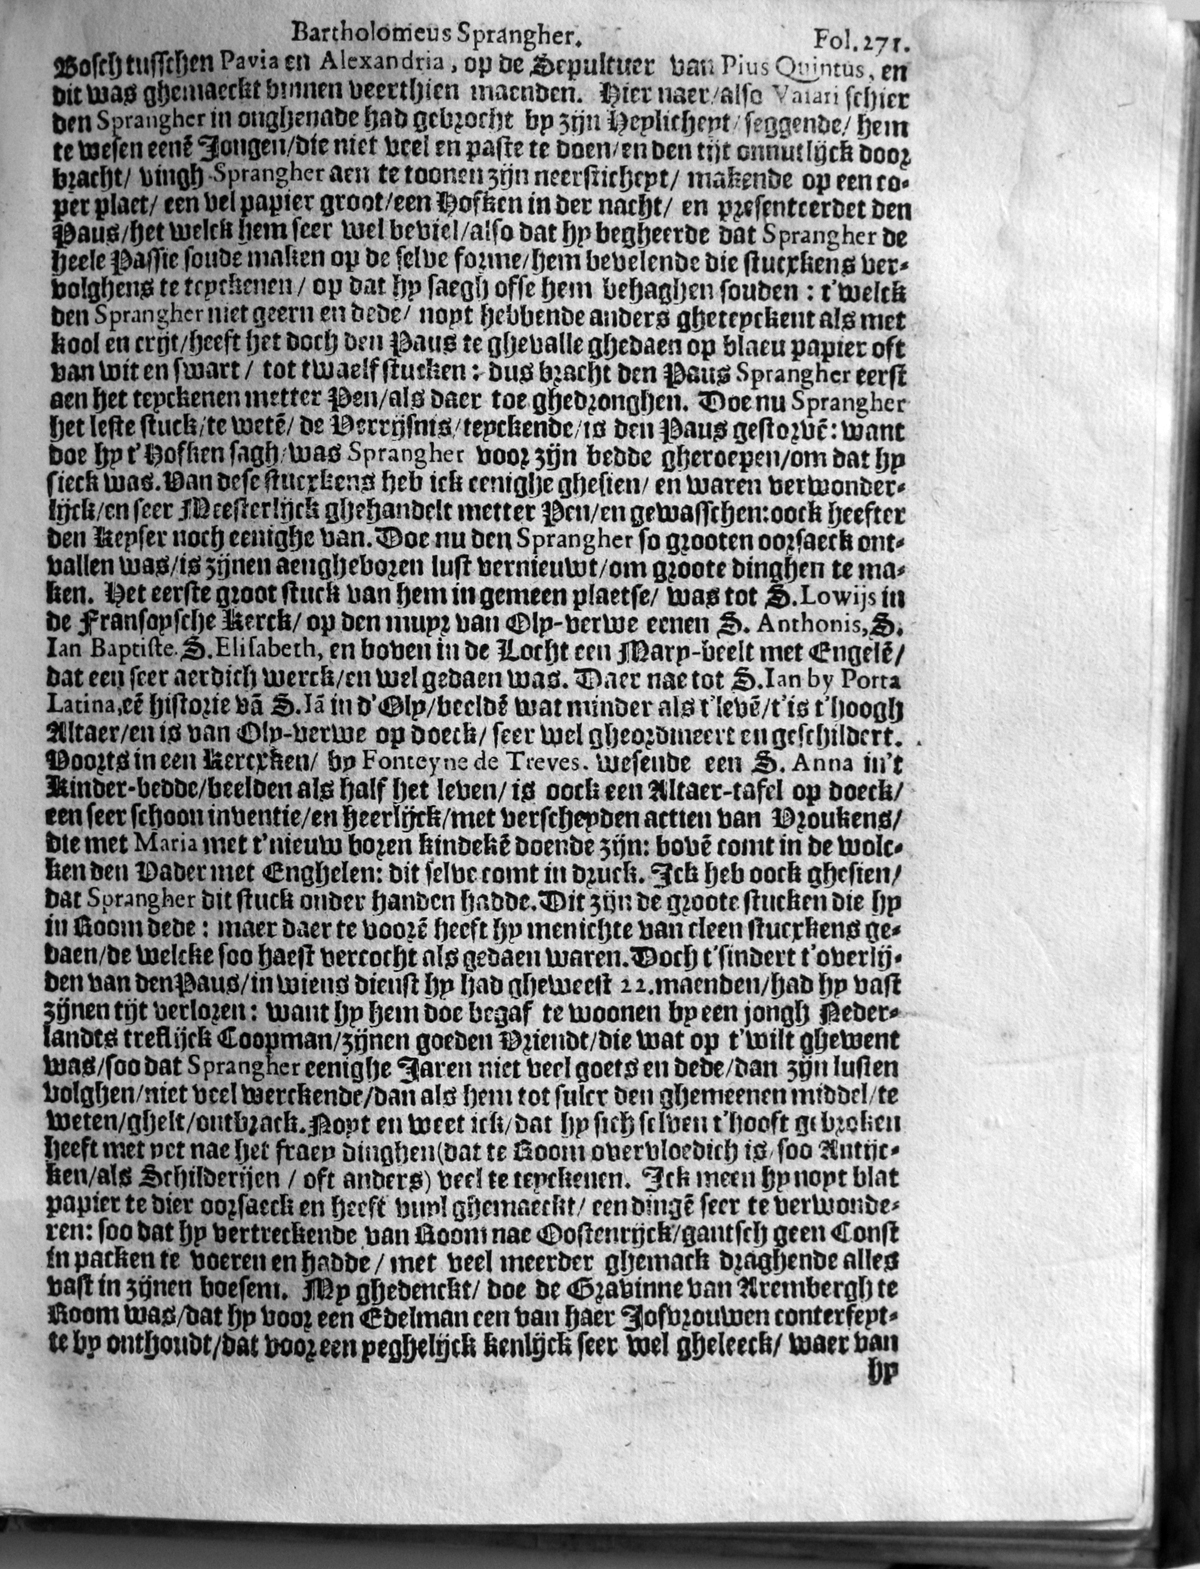 Bartholomeus Sprangher. Fol. 271.
Bosch tusschen Pavia en Alexandria, op de Sepultuer van Pius Quintus, en
dit was ghemaeckt binnen veerthien maenden. Hier naer/also Vasari schier
den Sprangher in onghenade had gebrocht by zijn Heylicheyt/seggende/ hem
te wesen eenē Jongen/die niet veel en paste te doen/en den tijt onnutlijck door
bracht/ vingh Sprangher aen te toonen zijn neersticheyt/ makende op een co-
per plaet/ een vel papier groot/een Hofken in der nacht/ en presenteerdet den
Paus/het welck hem seer wel beviel/also dat hy begheerde dat Sprangher de
heele Passie soude maken op de selve forme/hem bevelende die stucxkens ver-
volghens te teyckenen/ op dat hy saegh offe hem behaghen souden : t'welck
den Sprangher niet geern en dede/ noyt hebbende anders gheteyckent als met
kool en crijt/heeft het doch den Paus te ghevalle ghedaen op blaeu papier oft
van wit en swart/ tot twaelf stucken : dus bracht den Paus Sprangher eerst
aen het teyckenen metter Pen/als daer toe ghedronghen. Doe nu Sprangher
het leste stuck/te wetē/ de Verrijsnis/teyckende/is den Paus gestorvē: want
doe hy t'Hofken sagh/was Sprangher voor zijn bedde gheroepen/om dat hy
sieck was. Van dese stucxkens heb ick eenighe ghesien/ en waren verwonder-
lijck/en seer Meesterlijck ghehandelt metter Pen/en gewasschen: oock heefter
den Keyser noch eenighe van. Doe nu den Sprangher so grooten oorsaeck ont-
vallen was/is zijnen aengheboren lust vernieuwt/om groote dinghen te ma-
ken. Het eerste groot stuck van hem in gemeen plaetse/ was tot S. Lowijs in
de Fransoysche Kerck/ op den muyr van Oly-verwe eenen S. Anthonis, S.
Ian Baptiste. S. Elisabeth, en boven in de Locht een Mary-beelt met Engelē/
dat een seer aerdich werck/en wel gedaen was. Daer nae tot S. Ian by Porta
Latina, eē historie vā S. Iā in d'Oly/beeldē wat minder als t'levē/t'is t'hoogh
Altaer/en is van Oly-verwe op doeck/ seer wel gheordineert en geschildert.
Voorts in een Kercxken/ by Fonteyne de Treves. wesende een S. Anna in't
Kinder-bedde/beelden als half het leven/ is oock een Altaer-tafel op doeck/
een seer schoon inventie/en heerlijck/met verscheyden actien van Vroukens/
die met Maria met t'nieuw boren kindekē doende zijn: bovē comt in de wolc-
ken den Vader met Enghelen: dit selve comt in druck. Ick heb oock ghesien/
dat Sprangher dit stuck onder handen hadde. Dit zijn de groote stucken die hy
in Room dede : maer daer te voorē heeft hy menichte van cleen stucxkens ge-
daen/de welcke soo haest vercocht als gedaen waren. Doch t'sindert t'overlij-
den van den Paus/in wiens dienst hy had gheweest 22. maenden/had hy vast
zijnen tijt verloren : want hy hem doe begaf te woonen by een jongh Neder-
landts treflijck Coopman/zijnen goeden Vriendt/die wat op t'wilt ghewent
was/soo dat Sprangher eenighe Jaren niet veel goets en dede/dan zijn lusten
volghen/niet veel werckende/dan als hem tot sulcx den ghemeenen middel/te
weten/ghelt/ontbrack. Noyt en weet ick/dat hy sich selven t'hooft gebroken
heeft met yet nae het fraey dinghen (dat te Room overvloedich is/ soo Antijc-
ken/als Schilderijen / oft anders) veel te teyckenen. Ick meen hy noyt blat
papier te dier oorsaeck en heeft vuyl ghemaeckt/ een dingē seer te verwonde-
ren: soo dat hy vertreckende van Room nae Oostenrijck/gantsch geen Const
in packen te voeren en hadde/ met veel meerder ghemack draghende alles
vast in zijnen boesem. My ghedenckt/ doe de Gravinne van Arembergh te
Room was/dat hy voor een Edelman een van haer Jofvrouwen conterfeyt-
te by onthoudt/dat voor een yeghelijck kenlijck seer wel gheleeck/ waer van
hy